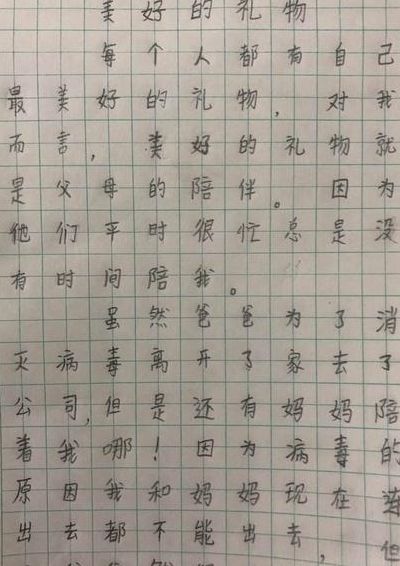 美好的礼物
每个人都有自己
最美好的礼物，对我
而言，美好的礼物就
是父母的陪伴。因为
他们平时很忙总是没
有时间陪我。
虽然爸爸为了消
灭病毒离开了家去了
公司，但是还有妈妈陪
着我哪！因为病毒的
原因我和妈妈现在连
出去都不能出去，但